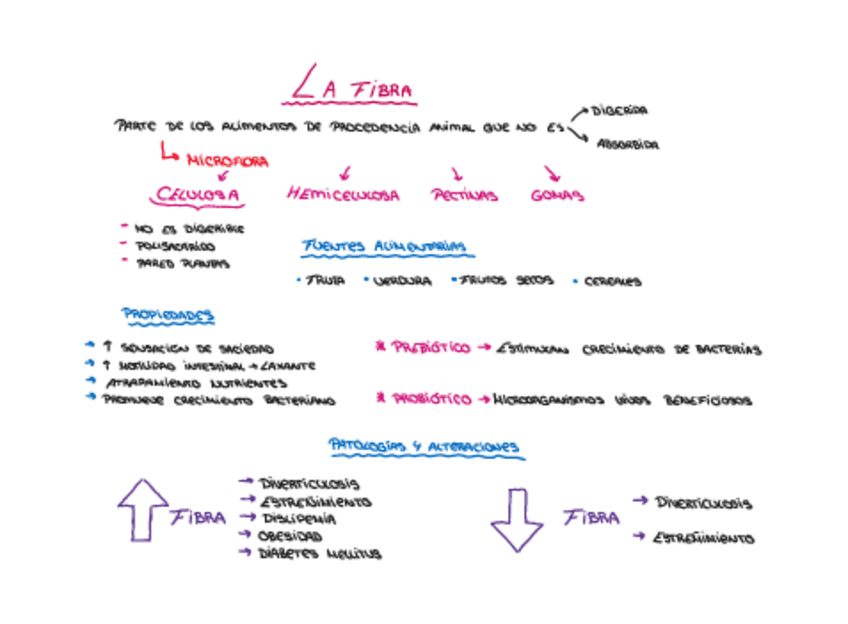 LA FIBRA
PARTE DE LOS ALIMENTOS DE PROCEDENCIA ANIMAL QUE NO ES
DIGERIDA
ABSORBIDA
MICROFLORA
CELULOSA HEMICELULOSA PECTINAS GOMAS
- NO ES DIGERIBLE
- POLISACÁRIDO
- PARED PLANTAS
FUENTES ALIMENTARIAS
• FRUTA • VERDURA • FRUTOS SECOS • CEREALES
PROPIEDADES
→ ↑ SENSACIÓN DE SACIEDAD
→ ↑ MOTILIDAD INTESTINAL → LAXANTE
→ ATRAPAMIENTO NUTRIENTES
→ PROMUEVE CRECIMIENTO BACTERIANO
* PREBIÓTICO → ESTIMULAN CRECIMIENTO DE BACTERIAS
* PROBIÓTICO → MICROORGANISMOS VIVOS BENEFICIOSOS
PATOLOGÍAS Y ALTERACIONES
↑ FIBRA
→ DIVERTICULOSIS
→ ESTREÑIMIENTO
→ DISLIPEMIA
→ OBESIDAD
→ DIABETES MELLITUS
↓ FIBRA
→ DIVERTICULOSIS
→ ESTREÑIMIENTO